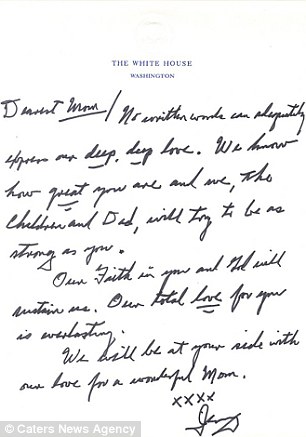 THE WHITE HOUSE
WASHINGTON
Dearest Mom / No written words can adequately
express our deep, deep love. We know
how great you are and we, the
children and Dad, will try to be as
strong as you.
Our Faith in you and God will
sustain us. Our total love for you
is everlasting.
We will be at your side with
our love for a wonderful Mom.
xxxx
Jerry
© Caters News Agency